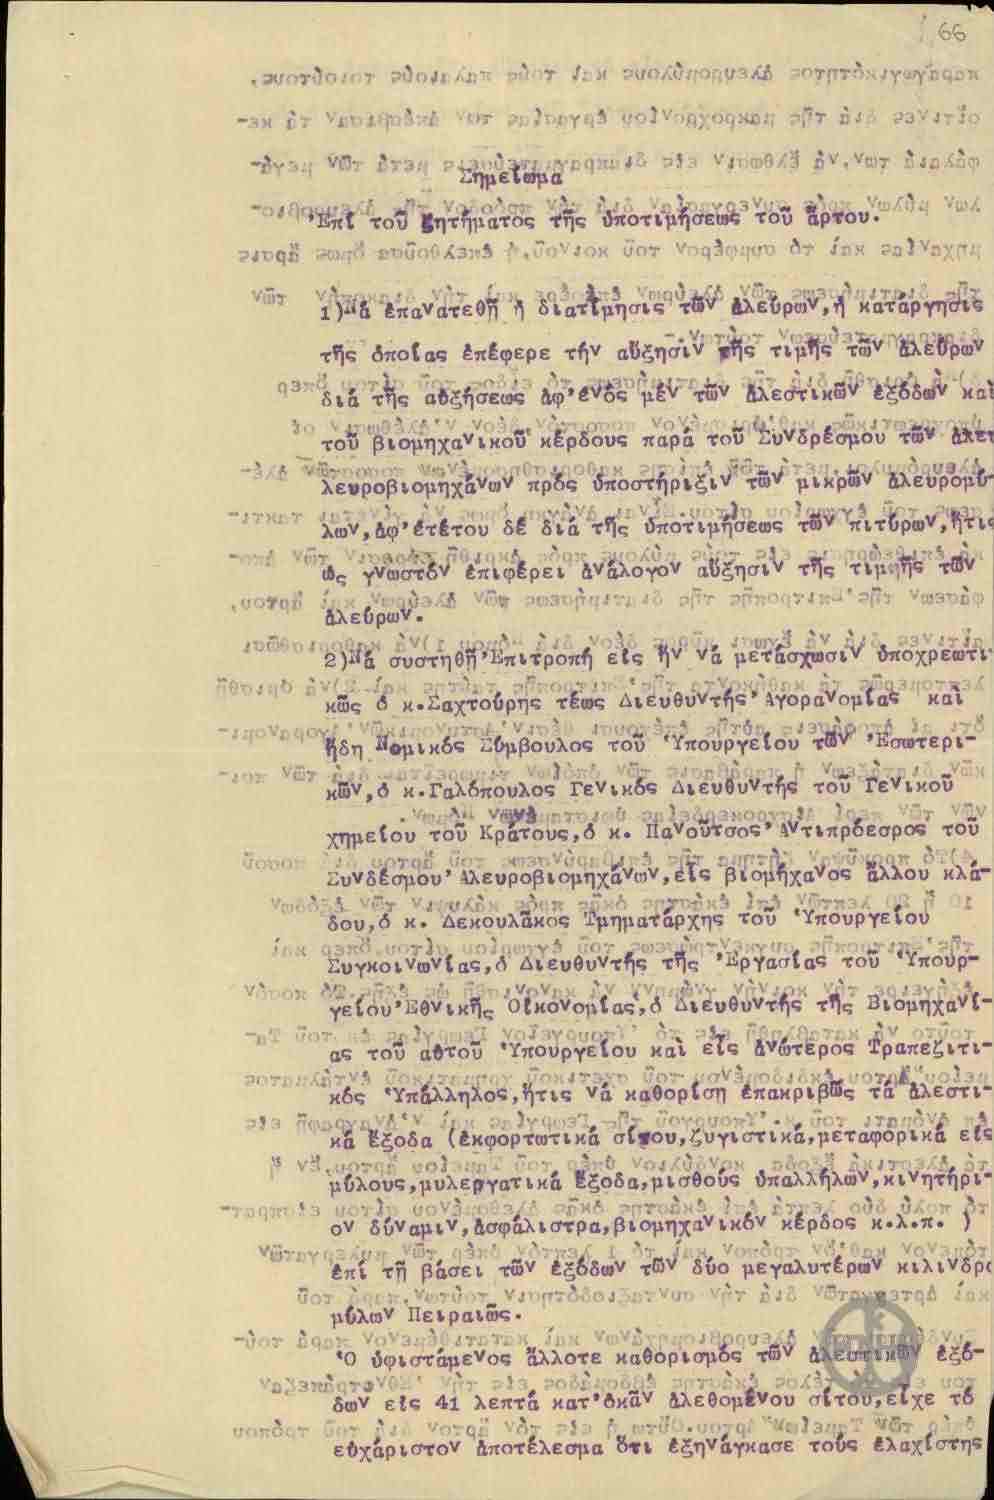 66
Σημείωμα
Ἐπί τοῦ ζητήματος τῆς ὑποτιμήσεως τοῦ ἄρτου.
1)Νά ἐπανατεθῇ ἡ διατίμησις τῶν ἀλεύρων,ἡ κατάργησις
τῆς ὁποίας ἐπέφερε τήν αὔξησιν τῆς τιμῆς τῶν ἀλεύρων
διά τῆς αὐξήσεως ἀφ'ἑνός μέν τῶν ἀλεστικῶν ἐξόδων καὶ
τοῦ βιομηχανικοῦ κέρδους παρά τοῦ Συνδρέσμου τῶν ἀλευ
λευροβιομηχάνων πρός ὑποστήριξιν τῶν μικρῶν ἀλευρομύ-
λων,ἀφ'ἑτέτου δέ διά τῆς ὑποτιμήσεως τῶν πιτύρων,ἥτις
ὡς γνωστόν ἐπιφέρει ἀνάλογον αὔξησιν τῆς τιμῆς τῶν
ἀλεύρων.
2)Νά συστηθῇ Ἐπιτροπή εἰς ἥν νά μετάσχωσιν ὑποχρεωτι-
κῶς ὁ κ.Σαχτούρης τέως Διευθυντής Ἀγορανομίας καὶ
ἤδη Νομικός Σύμβουλος τοῦ Ὑπουργείου τῶν Ἐσωτερι-
κῶν,ὁ κ.Γαλόπουλος Γενικός Διευθυντής τοῦ Γενικοῦ
χημείου τοῦ Κράτους,ὁ κ. Πανοῦτσος Ἀντιπρόεσρος τοῦ
Συνδέσμου Ἀλευροβιομηχάνων,εἷς βιομήχανος ἄλλου κλά-
δου,ὁ κ. Δεκουλᾶκος Τμηματάρχης τοῦ Ὑπουργείου
Συγκοινωνίας,ὁ Διευθυντής τῆς Ἐργασίας τοῦ Ὑπουρ-
γείου Ἐθνικῆς Οἰκονομίας,ὁ Διευθυντής τῆς Βιομηχανί-
ας τοῦ αὐτοῦ Ὑπουργείου καὶ εἷς ἀνώτερος Τραπεζιτι-
κός Ὑπάλληλος,ἥτις νά καθορίσῃ ἐπακριβῶς τά ἀλεστι-
κά ἔξοδα (ἐκφορτωτικά σίτου,ζυγιστικά,μεταφορικά εἰς
μύλους,μυλεργατικά ἔξοδα,μισθούς ὑπαλλήλων,κινητήρι-
ον δύναμιν,ἀσφάλιστρα,βιομηχανικόν κέρδος κ.λ.π. )
ἐπί τῇ βάσει τῶν ἐξόδων τῶν δύο μεγαλυτέρων κιλινδρο
μύλων Πειραιῶς.
Ὁ ὑφιστάμενος ἄλλοτε καθορισμός τῶν ἀλεστικῶν ἐξό-
δων εἰς 41 λεπτά κατ'ὀκᾶν ἀλεθομένου σίτου,εἶχε τό
εὐχάριστον ἀποτέλεσμα ὅτι ἐξηνάγκασε τούς ἐλαχίστης